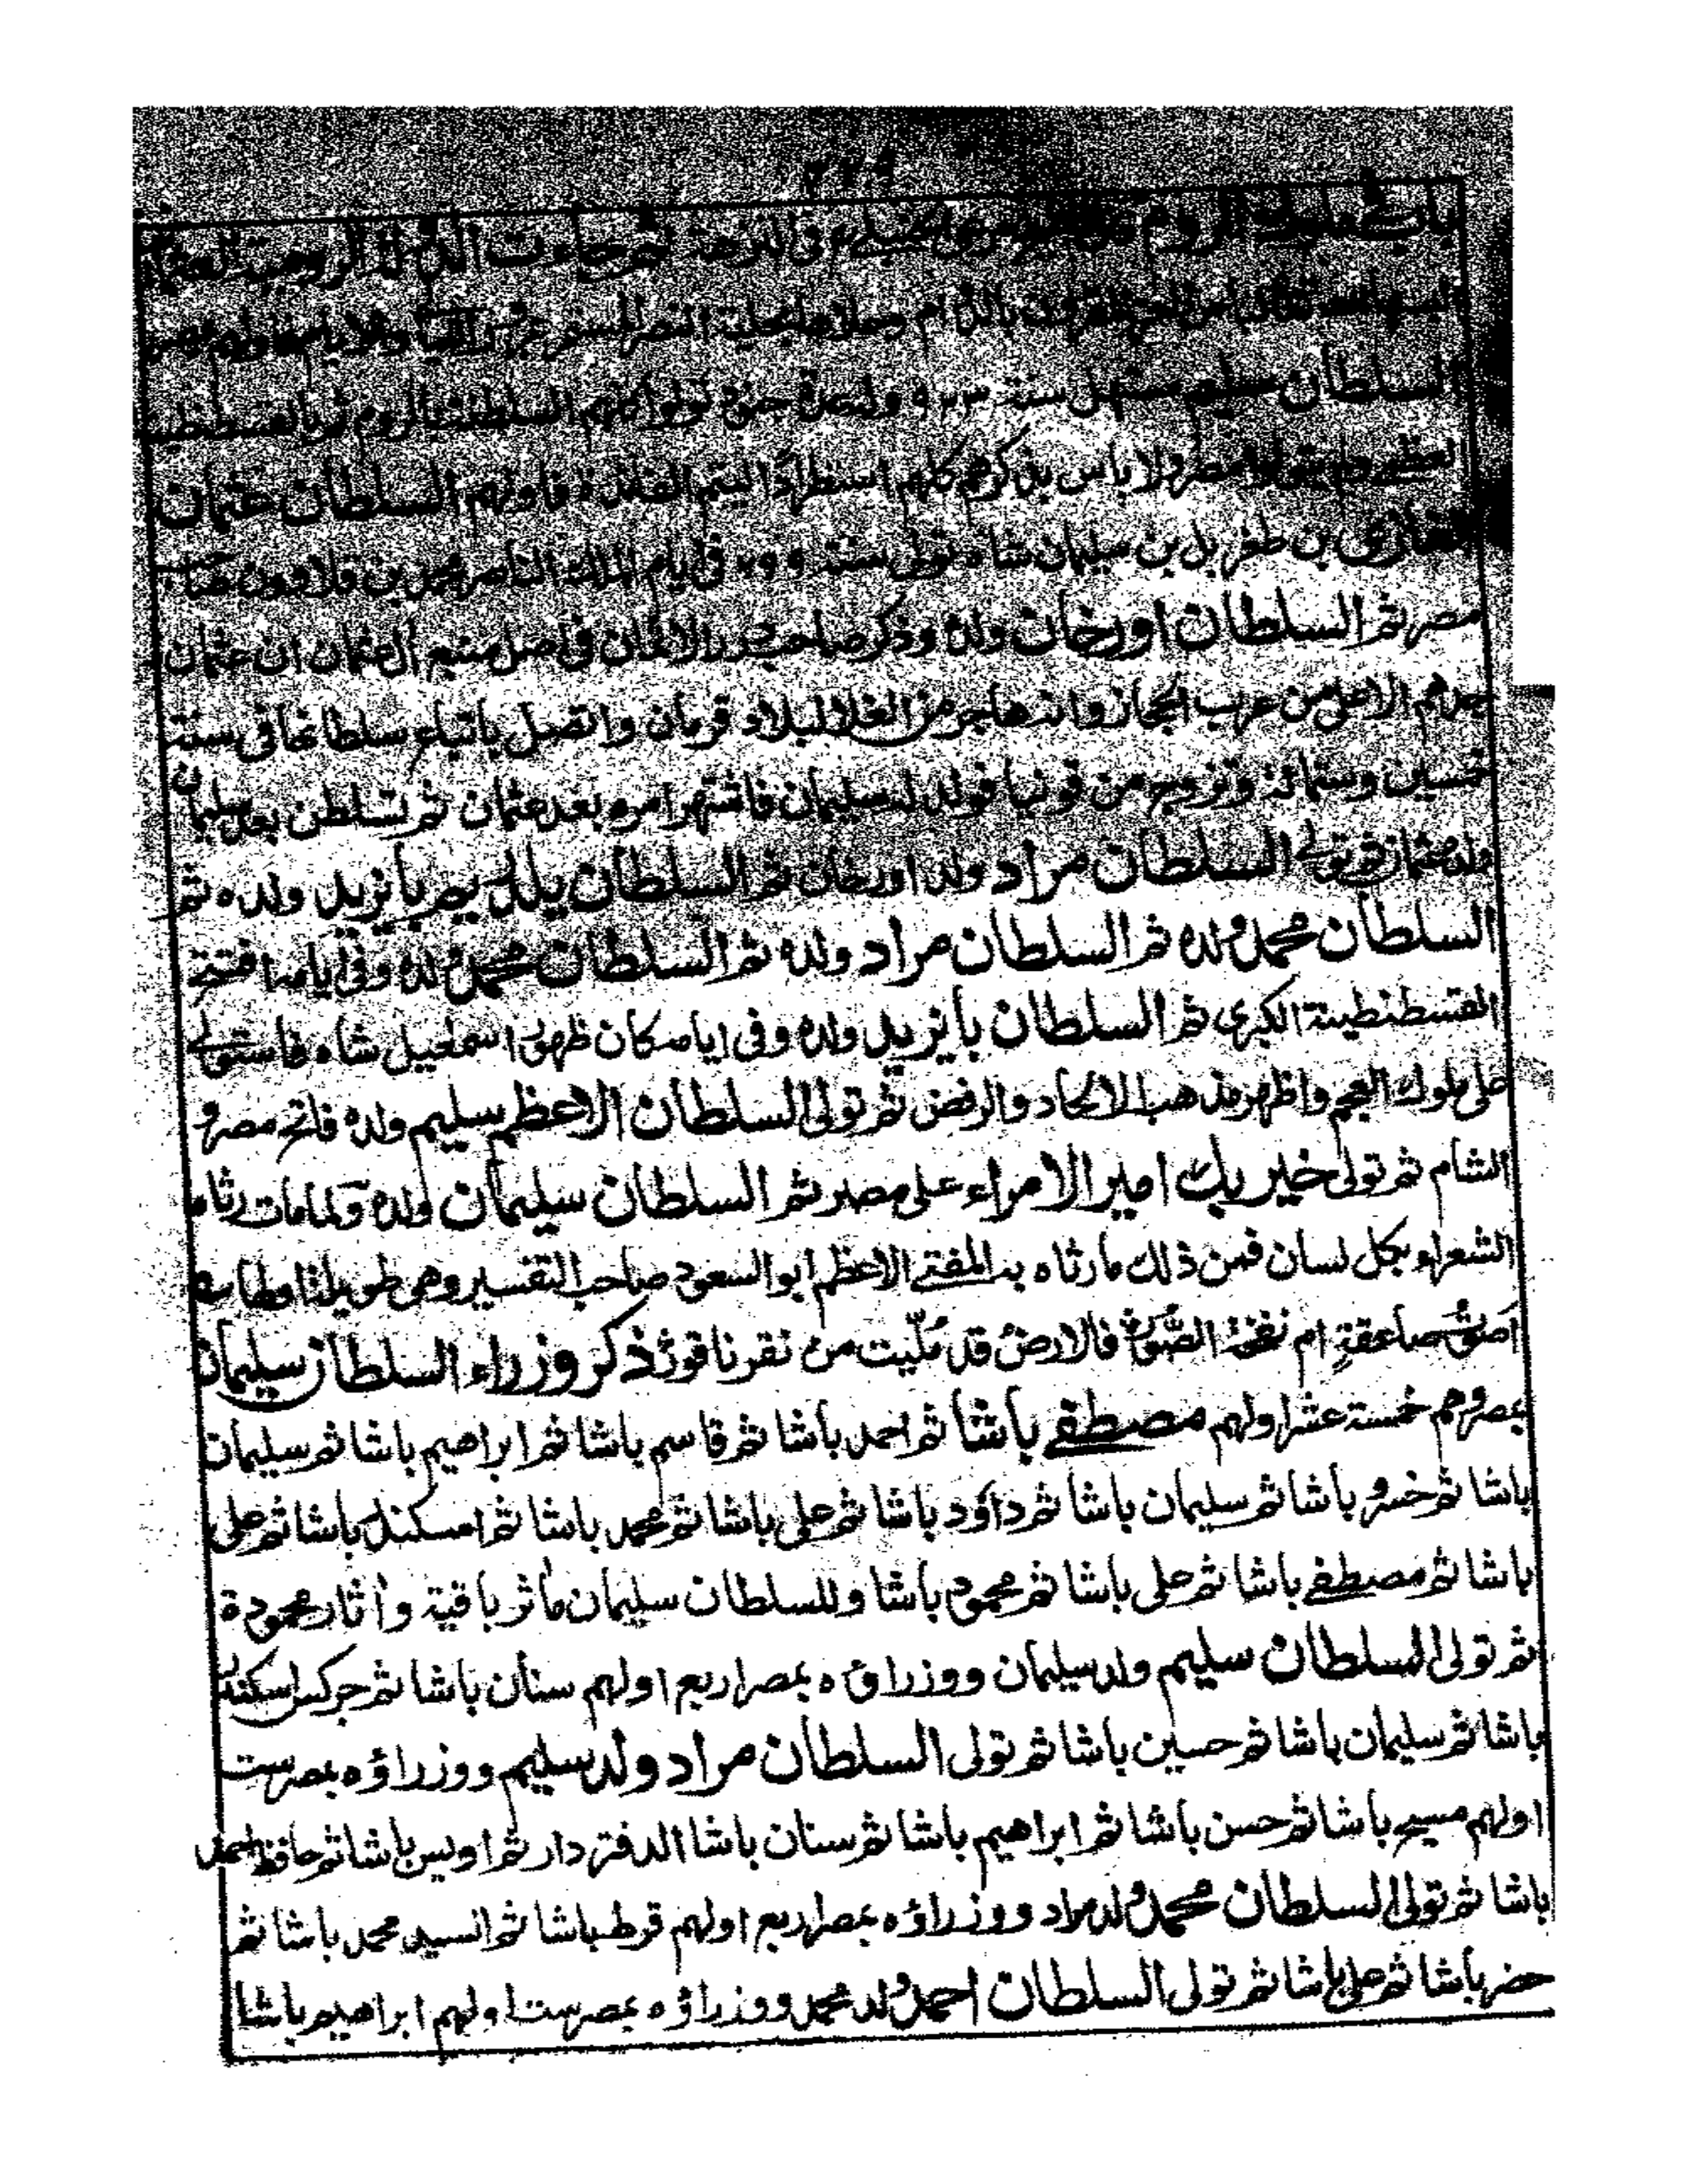 ثم جاءت الدولة الرومية
السلطان سليم سنة
ولا باس بذكرهم كلهم فاولهم السلطان عثمان
بن سليمان شاه تولى سنة في ايام الملك الناصر محمد بن قلاوون صاحب
مصر ثم السلطان اورخان ولده وذكر صاحب درر الاثمان في اصل منبع ال عثمان ان عثمان
جدهم الاعلى من عرب الحجاز وانه هاجر من الغلا لبلاد قرمان واتصل باتباع سلطانها في سنة
خمسين وستمائة وتزوج من قونيا فولد له سليمان فاشتهر امره بعد عثمان ثم تسلطن بعد سليمان
ولده عثمان ثم تولى السلطان مراد ولد اورخان ثم السلطان يلدريم بايزيد ولده ثم
السلطان محمد ولده ثم السلطان مراد ولده ثم السلطان محمد ولده وفي ايامه افتتح
القسطنطينة الكبرى ثم السلطان بايزيد ولده وفي ايامه كان ظهور اسمعيل شاه فاستولى
على ملوك العجم واظهر مذهب الالحاد والرفض ثم تولى السلطان الاعظم سليم ولده فاتح مصر و
الشام ثم تولى خير بك امير الامراء على مصر ثم السلطان سليمان ولده ولما مات رثاه
الشعراء بكل لسان فمن ذلك ما رثاه به المفتي الاعظم ابو السعود صاحب التفسير وهي طويلة
اصوت صاعقةٍ ام نفخة الصُّور فالارضُ قد مُلّيت من نقر ناقور ذكر وزراء السلطان سليمان
بمصر وهم خمسة عشر اولهم مصطفى باشا ثم احمد باشا ثم قاسم باشا ثم ابراهيم باشا ثم سليمان
باشا ثم خسرو باشا ثم سليمان باشا ثم داؤد باشا ثم على باشا ثم محمد باشا ثم اسكندر باشا ثم على
باشا ثم مصطفى باشا ثم على باشا ثم محمود باشا وللسلطان سليمان مآثر باقية وآثار محمودة
ثم تولى السلطان سليم ولد سليمان ووزراؤه بمصر اربع اولهم سنان باشا ثم جركس اسكندر
باشا ثم سليمان باشا ثم حسين باشا ثم تولى السلطان مراد ولد سليم ووزراؤه بمصر ست
اولهم مسيح باشا ثم حسن باشا ثم ابراهيم باشا ثم سنان باشا الدفتردار ثم اويس باشا ثم حافظ احمد
باشا ثم تولى السلطان محمد ولد مراد ووزراؤه بمصر اربع اولهم قرط باشا ثم السيد محمد باشا ثم
حضر باشا ثم على باشا ثم تولى السلطان احمد ولد محمد ووزراؤه بمصر ست اولهم ابراهيم باشا